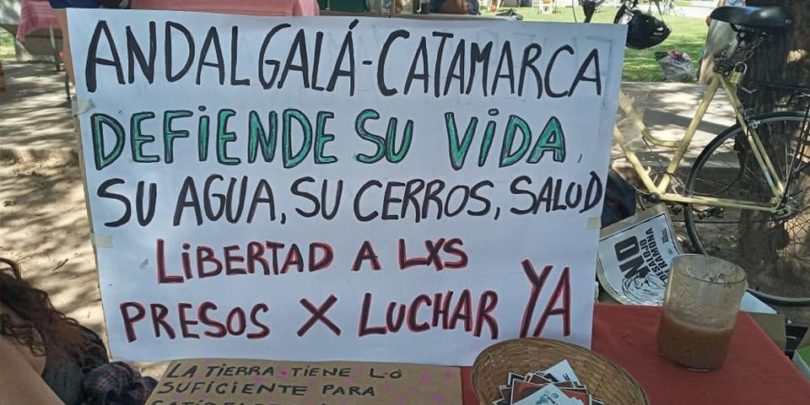 ANDALGALÁ-CATAMARCA
DEFIENDE SU VIDA,
SU AGUA, SU CERROS, SALUD
LIBERTAD A LXS
PRESOS X LUCHAR YA
LA TIERRA TIENE LO
SUFICIENTE PARA
NO
DESALOJO
DE RAMONA